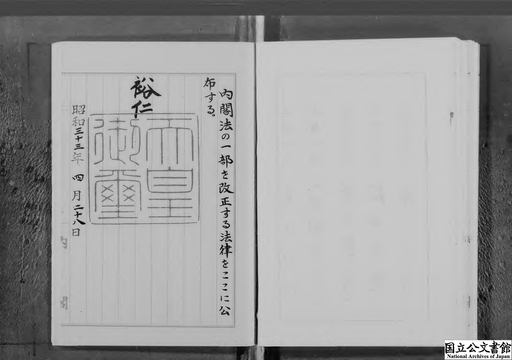 内閣法の一部を改正する法律をここに公
布する
裕仁
天皇
御璽
昭和三十三年四月二十八日
国立公文書館
National Archives of Japan